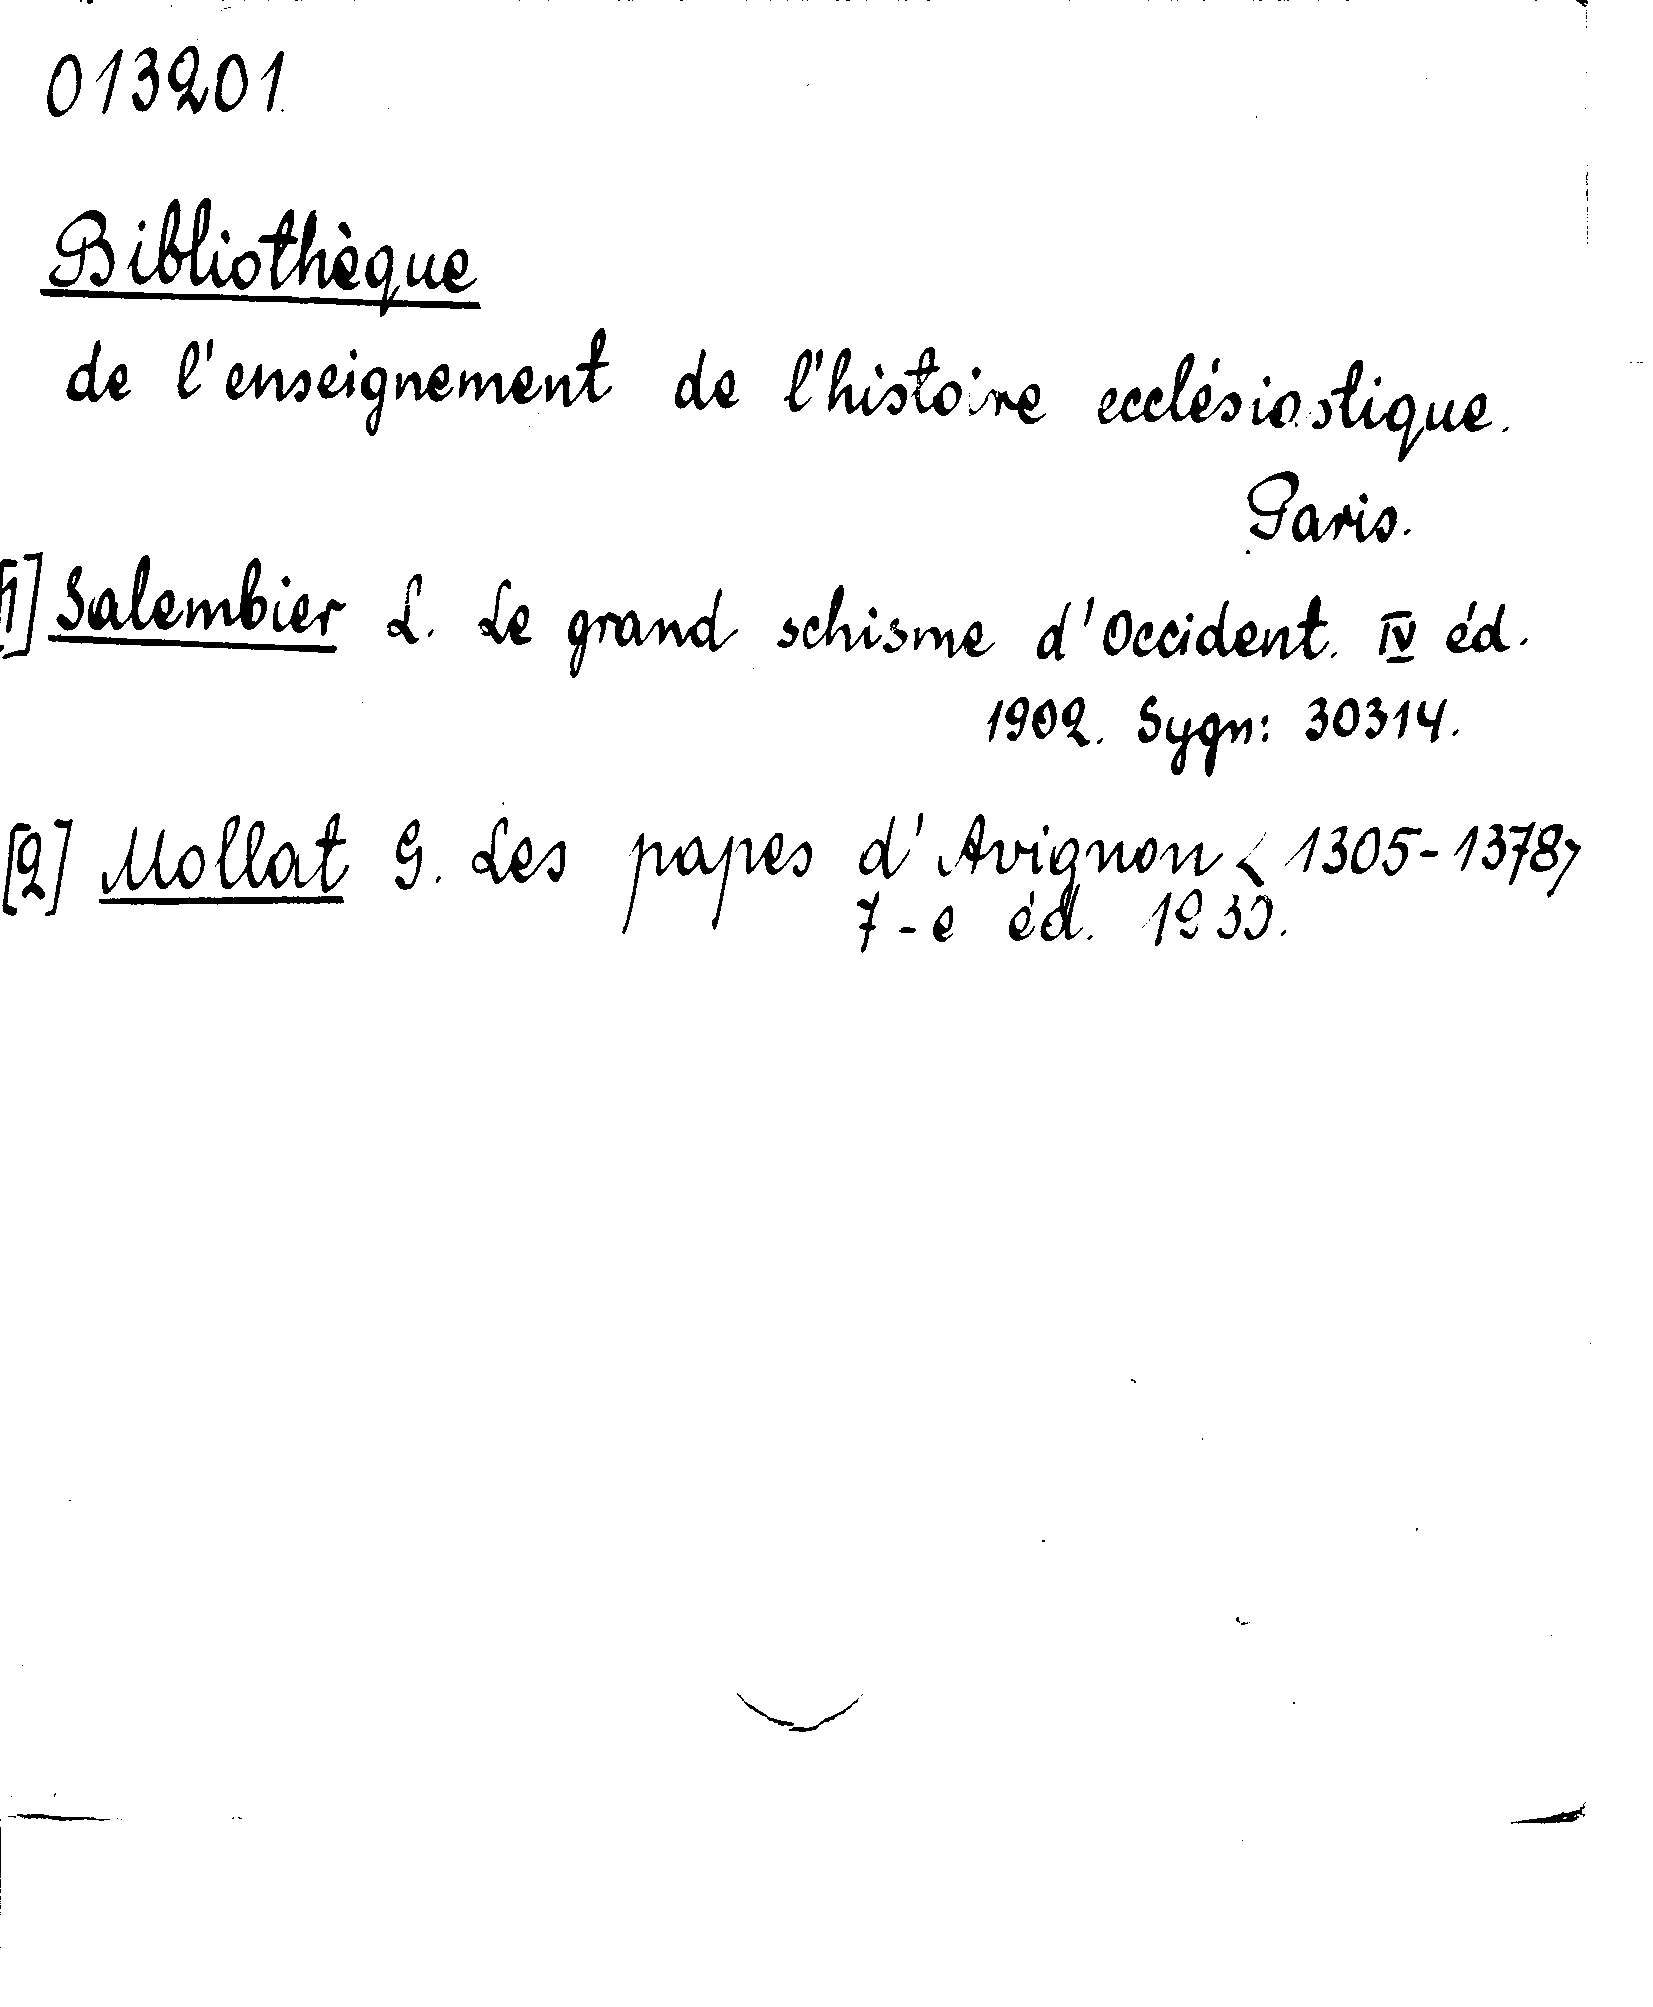 013201
Bibliothèque
de l'enseignement de l'histoire ecclésiastique.
Paris.
[1] Salembier L. Le grand schisme d'Occident. IV éd.
1902. Sygn: 30314.
[2] Mollat G. Les papes d'Avignon <1305-1378>
7-e éd. 1930.